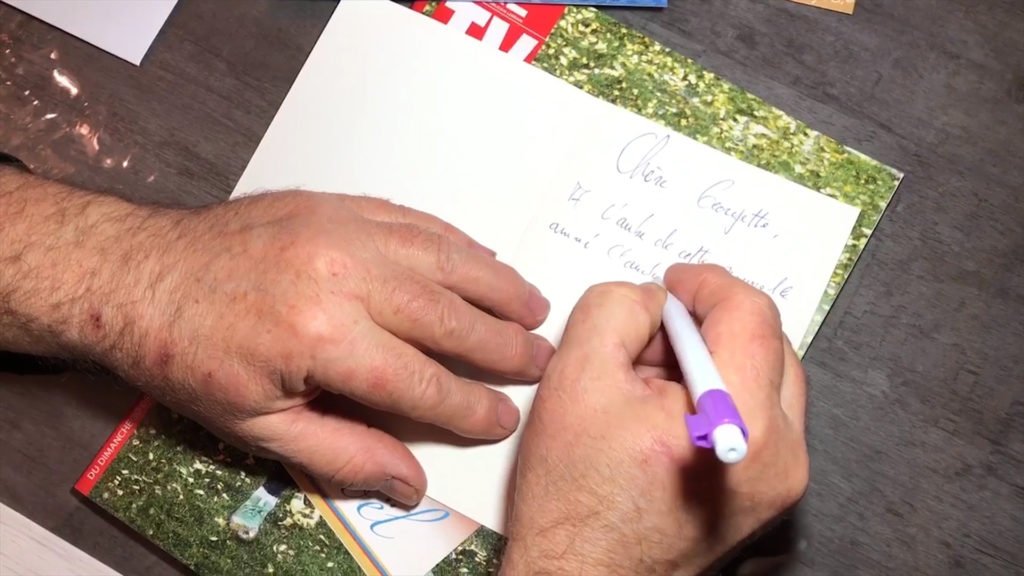 Chère Georgette,
A l'aube de cette nouvelle
année Claude
DU DIMANCHE
el